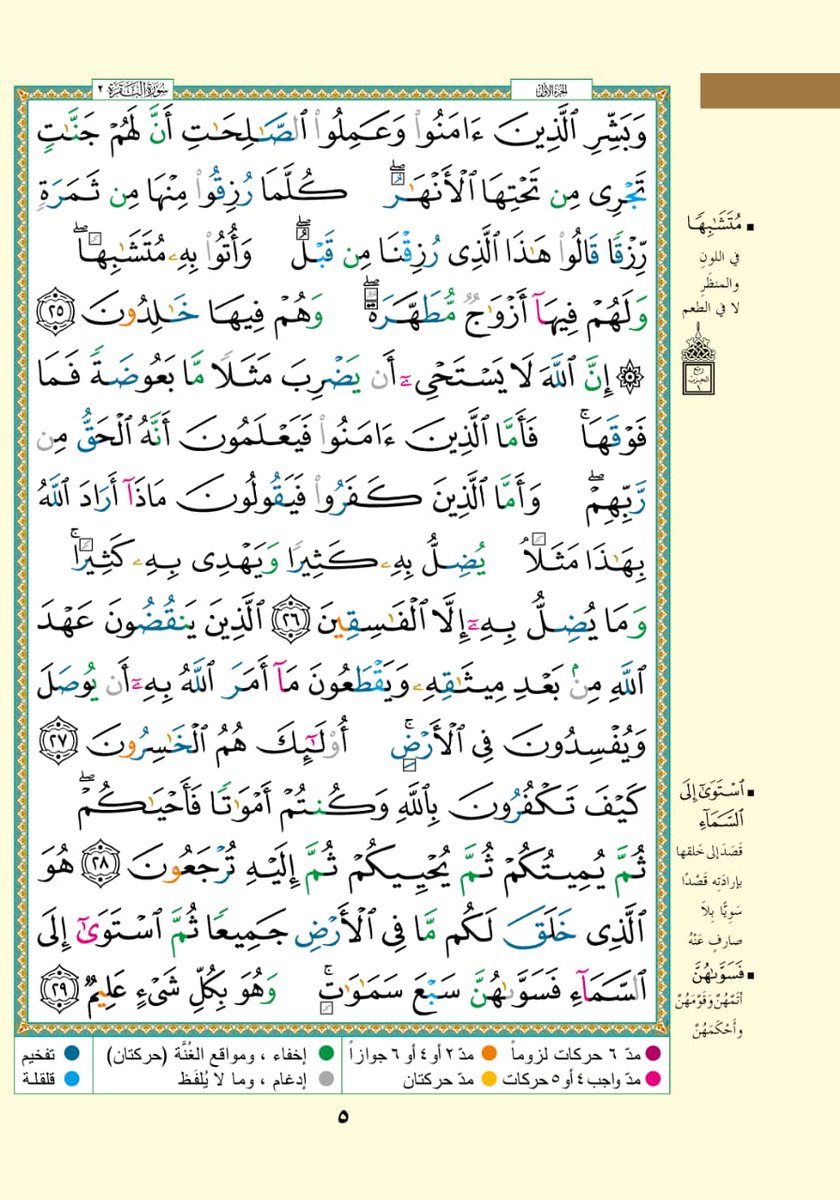 سُورَةُ البَقَرَة ٢
الجزء الأول
وَبَشِّرِ ٱلَّذِينَ ءَامَنُوا۟ وَعَمِلُوا۟ ٱلصَّـٰلِحَـٰتِ أَنَّ لَهُمْ جَنَّـٰتٍ
تَجْرِى مِن تَحْتِهَا ٱلْأَنْهَـٰرُ ۖ كُلَّمَا رُزِقُوا۟ مِنْهَا مِن ثَمَرَةٍ
رِّزْقًا قَالُوا۟ هَـٰذَا ٱلَّذِى رُزِقْنَا مِن قَبْلُ ۖ وَأُتُوا۟ بِهِۦ مُتَشَـٰبِهًا ۖ
وَلَهُمْ فِيهَآ أَزْوَٰجٌ مُّطَهَّرَةٌ ۖ وَهُمْ فِيهَا خَـٰلِدُونَ ٢٥
۞ إِنَّ ٱللَّهَ لَا يَسْتَحْىِۦٓ أَن يَضْرِبَ مَثَلًا مَّا بَعُوضَةً فَمَا
فَوْقَهَا ۚ فَأَمَّا ٱلَّذِينَ ءَامَنُوا۟ فَيَعْلَمُونَ أَنَّهُ ٱلْحَقُّ مِن
رَّبِّهِمْ ۖ وَأَمَّا ٱلَّذِينَ كَفَرُوا۟ فَيَقُولُونَ مَاذَآ أَرَادَ ٱللَّهُ
بِهَـٰذَا مَثَلًا ۘ يُضِلُّ بِهِۦ كَثِيرًا وَيَهْدِى بِهِۦ كَثِيرًا ۚ
وَمَا يُضِلُّ بِهِۦٓ إِلَّا ٱلْفَـٰسِقِينَ ٢٦ ٱلَّذِينَ يَنقُضُونَ عَهْدَ
ٱللَّهِ مِنۢ بَعْدِ مِيثَـٰقِهِۦ وَيَقْطَعُونَ مَآ أَمَرَ ٱللَّهُ بِهِۦٓ أَن يُوصَلَ
وَيُفْسِدُونَ فِى ٱلْأَرْضِ ۚ أُو۟لَـٰٓئِكَ هُمُ ٱلْخَـٰسِرُونَ ٢٧
كَيْفَ تَكْفُرُونَ بِٱللَّهِ وَكُنتُمْ أَمْوَٰتًا فَأَحْيَـٰكُمْ ۖ
ثُمَّ يُمِيتُكُمْ ثُمَّ يُحْيِيكُمْ ثُمَّ إِلَيْهِ تُرْجَعُونَ ٢٨ هُوَ
ٱلَّذِى خَلَقَ لَكُم مَّا فِى ٱلْأَرْضِ جَمِيعًا ثُمَّ ٱسْتَوَىٰٓ إِلَى
ٱلسَّمَآءِ فَسَوَّىٰهُنَّ سَبْعَ سَمَـٰوَٰتٍ ۚ وَهُوَ بِكُلِّ شَىْءٍ عَلِيمٌ ٢٩
▪ مُتَشَـٰبِهًا
في اللونِ
والمنظَرِ
لا في الطعم
ربع
الحزب
١
▪ ٱسْتَوَىٰٓ إِلَى
ٱلسَّمَآءِ
قَصَدَ إلى خَلقها
بإرادَتِه قَصْدًا
سَوِيًّا بِلَا
صارفٍ عَنْهُ
▪ فَسَوَّىٰهُنَّ
أتَمَّهُنَّ وَقَوَّمَهُنَّ
وأَحْكَمَهُنَّ
مدّ ٦ حركات لزوماً
مدّ ٢ أو ٤ أو ٦ جوازاً
إخفاء ، ومواقع الغُنَّة (حركتان)
تفخيم
مدّ واجب ٤ أو ٥ حركات
مدّ حركتان
إدغام ، وما لا يُلفَظ
قلقلة
٥